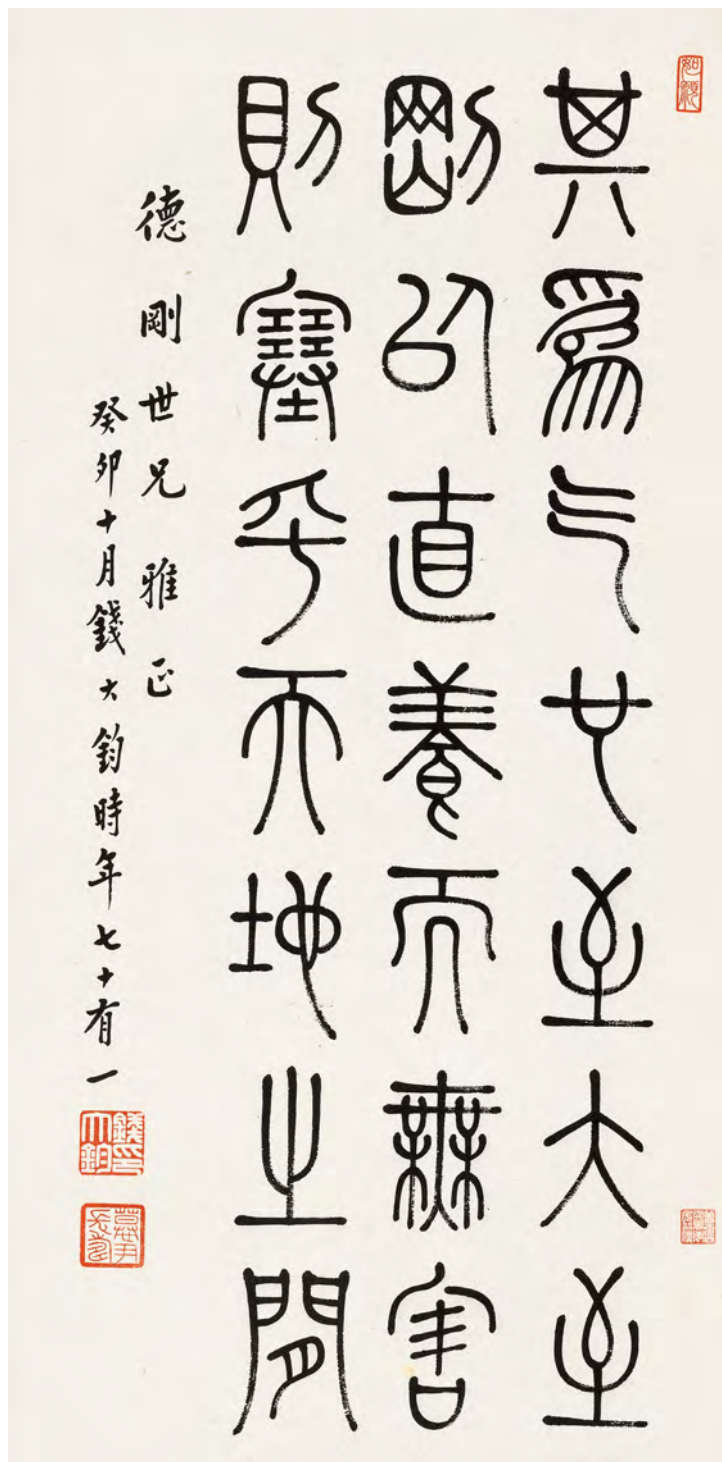 其爲气也至大至
剛以直養而無害
則塞乎天地之間
德剛世兄雅正
癸卯十月錢大鈞時年七十有一
錢印大鈞